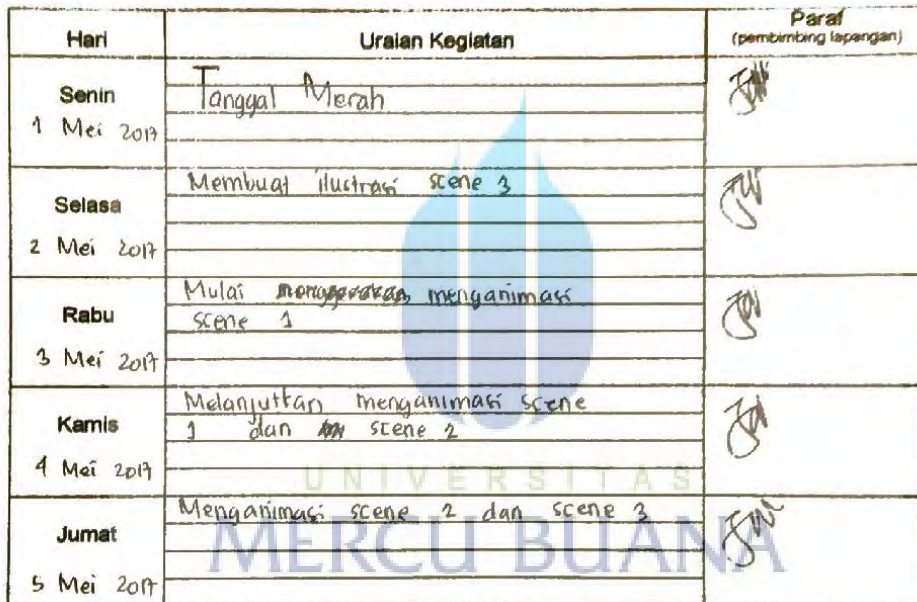 Hari Uraian Kegiatan Paraf
(pembimbing lapangan)
Senin
1 Mei 2017
Tanggal Merah
Selasa
2 Mei 2017
Membuat ilustrasi scene 3
Rabu
3 Mei 2017
Mulai menganimasi
scene 1
Kamis
4 Mei 2017
Melanjutkan menganimasi scene
1 dan scene 2
Jumat
5 Mei 2017
Menganimasi scene 2 dan scene 3
UNIVERSITAS
MERCU BUANA